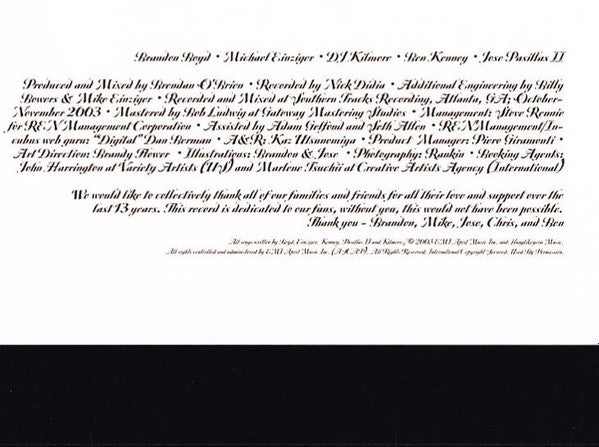 Brandon Boyd • Michael Einziger • DJ Kilmore • Ben Kenney • Jose Pasillas II
Produced and Mixed by Brendan O'Brien • Recorded by Nick Didia • Additional Engineering by Billy
Bowers & Mike Einziger • Recorded and Mixed at Southern Tracks Recording, Atlanta, GA; October-
November 2003 • Mastered by Bob Ludwig at Gateway Mastering Studios • Management: Steve Rennie
for REN Management Corporation • Assisted by Adam Geffond and Seth Allen • REN Management/In-
cubus web guru: "Digital" Dan Berman • A&R: Kaz Utsunomiya • Product Manager: Piero Giramonti •
Art Direction: Brandy Flower • Illustrations: Brandon & Jose • Photography: Rankin • Booking Agents:
John Harrington at Variety Artists (US) and Marlene Tsuchii at Creative Artists Agency (International)
We would like to collectively thank all of our families and friends for all their love and support over the
last 13 years. This record is dedicated to our fans, without you, this would not have been possible.
Thank you - Brandon, Mike, Jose, Chris, and Ben
All songs written by Boyd, Einziger, Kenney, Pasillas II and Kilmore, © 2003 EMI April Music Inc. and Hunglikeyora Music.
All rights controlled and administered by EMI April Music Inc. (ASCAP). All Rights Reserved. International Copyright Secured. Used By Permission.